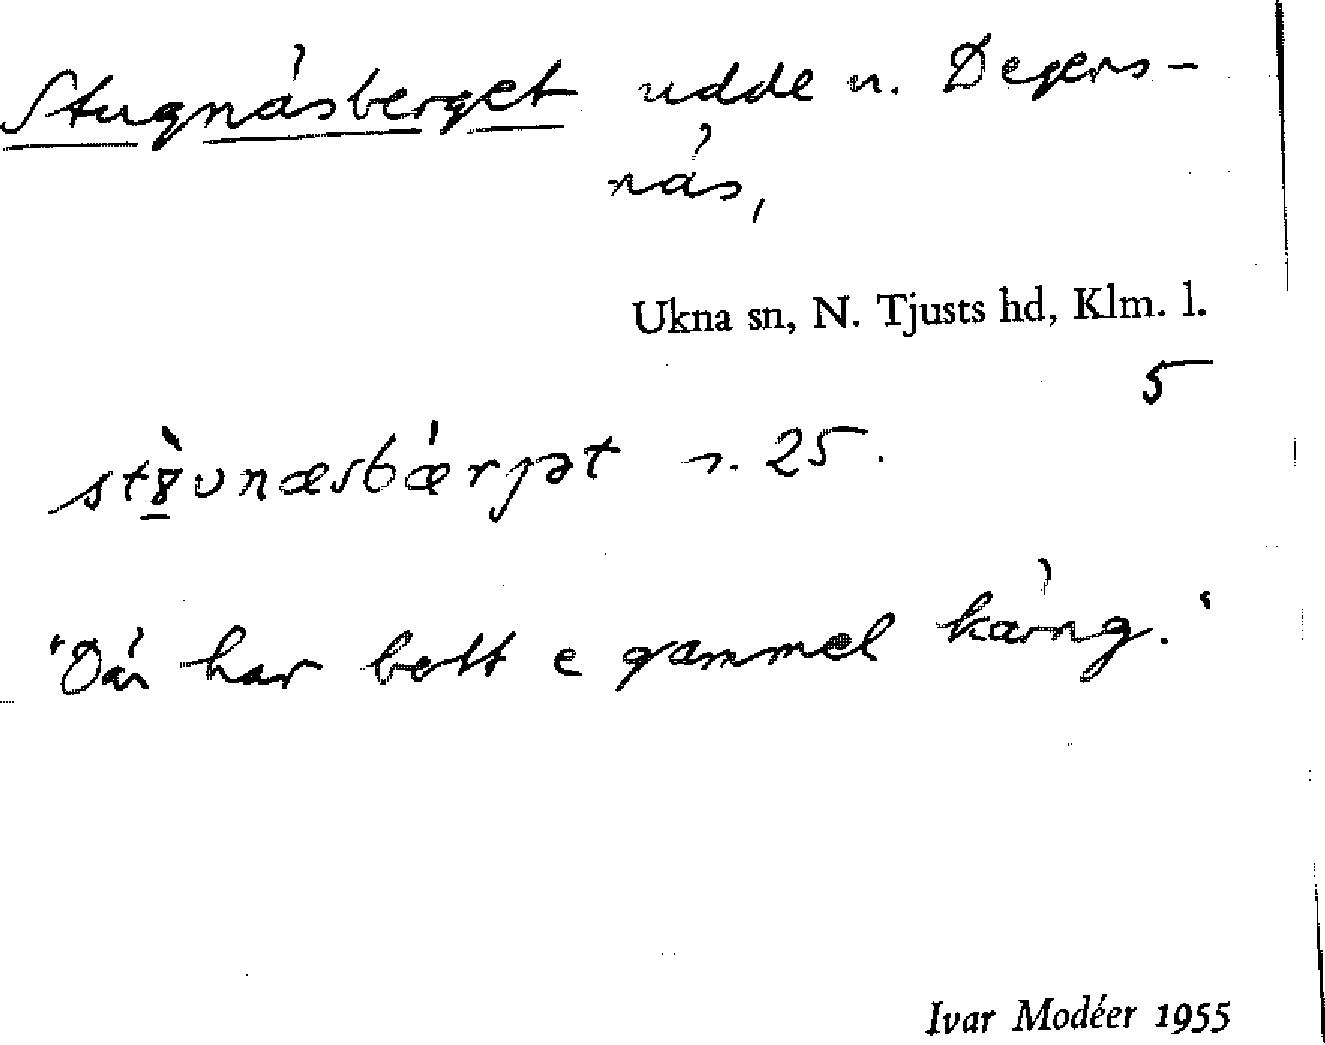 Stugnäsberget udde n. Degers-
näs,
Ukna sn, N. Tjusts hd, Klm. l.
5
n. 25.
"Där har bott e gammel käring."
Ivar Modéer 1955